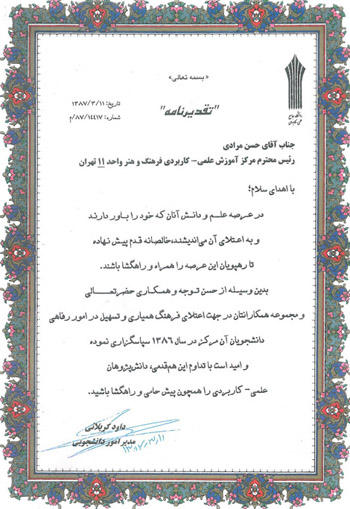 «بسمه تعالی»
تاریخ: ۱۳۸۷/۳/۱۱
شماره: ۸۷/۱۴۴۱۷/م
"تقدیرنامه"
جناب آقای حسن مرادی
رئیس محترم مرکز آموزش علمی- کاربردی فرهنگ و هنر واحد ۱۱ تهران
با اهدای سلام؛
در عرصه علم و دانش آنان که خود را باور دارند
و به اعتلای آن می‌اندیشند،خالصانه قدم پیش نهاده
تا رهپویان این عرصه را همراه و راهگشا باشند.
بدین وسیله از حسن توجه و همکاری حضرتعالی
و مجموعه همکارانتان در جهت اعتلای فرهنگ همیاری و تسهیل در امور رفاهی
دانشجویان آن مرکز در سال ۱۳۸۶ سپاسگزاری نموده
و امید است با تداوم این هم‌قدمی، دانش‌پژوهان
علمی- کاربردی را همچون پیش حامی و راهگشا باشید.
داود کربلائی
مدیر امور دانشجویی